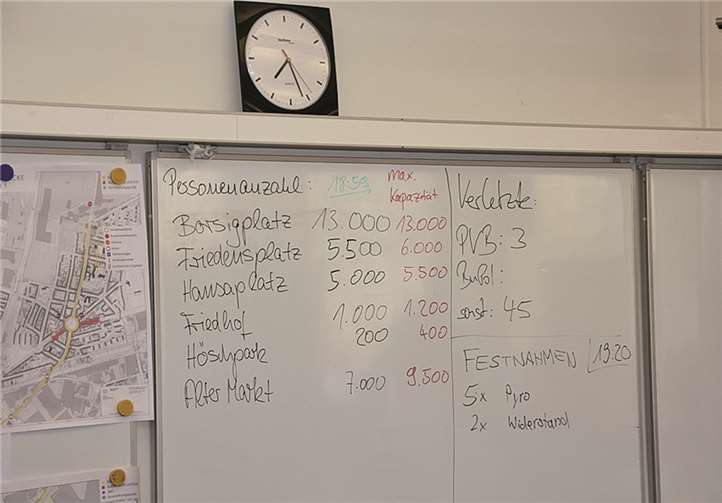 Personenanzahl: 18:53 max. Kapazität
Borsigplatz 13.000 13.000
Friedensplatz 5.500 6.000
Hansaplatz 5.000 5.500
Friedhof 1.000 1.200
Höschpark 200 400
Alter Markt 7.000 9.500
Verletzte:
PVB: 3
BuPol:
sonst: 45
FESTNAHMEN 19:20
5x Pyro
2x Widerstand